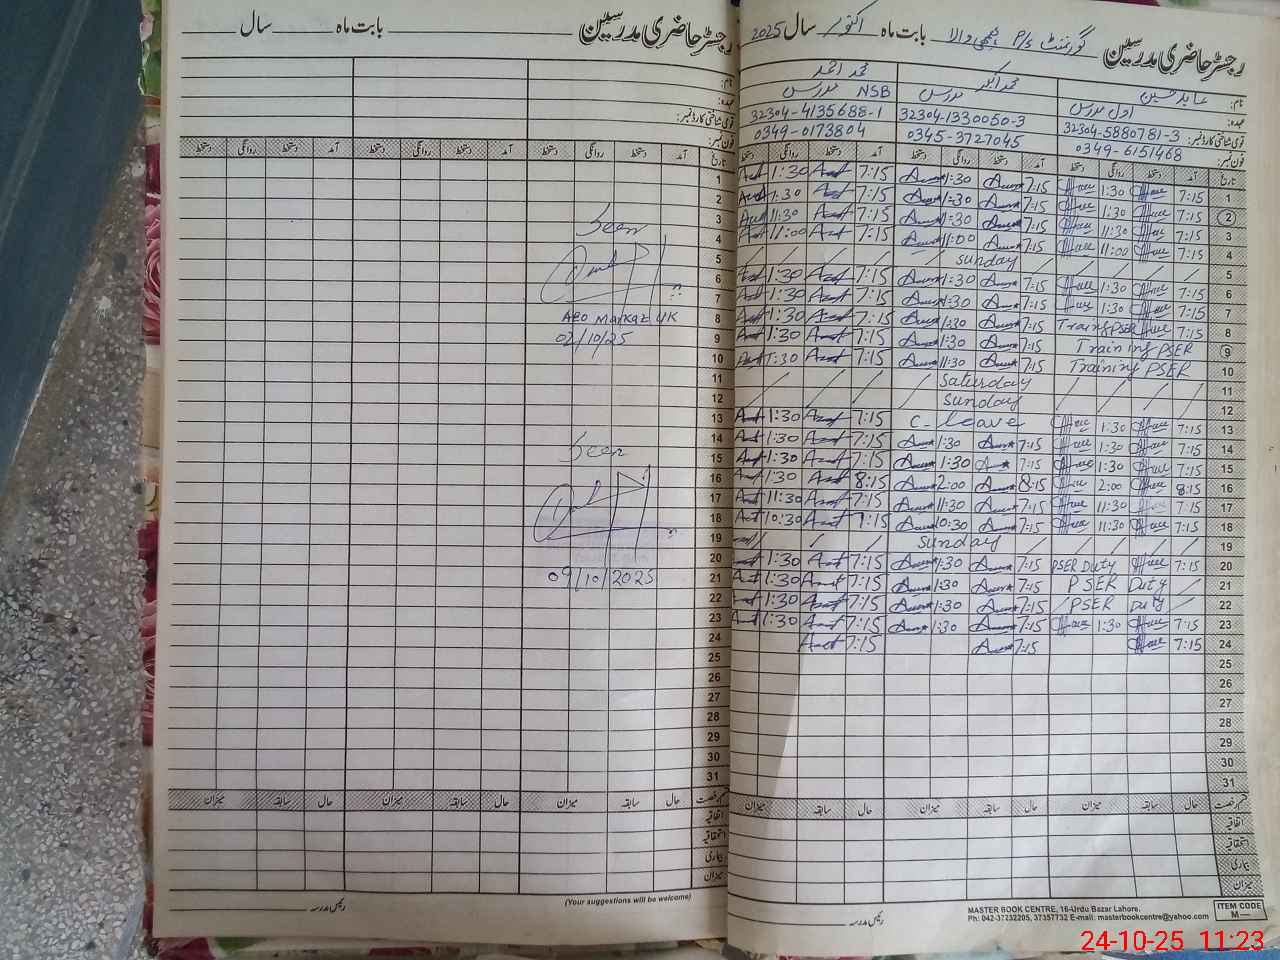 رجسٹر حاضری مدرسین گورنمنٹ P/S بابت ماہ اکتوبر سال 2025
نام: عابد حسین محمد اکبر محمد احمد
عہدہ: اول مدرس مدرس NSB مدرس
قومی شناختی کارڈ نمبر: 32304-5880781-3 32304-1330050-3 32304-4135688-1
فون نمبر: 0349-6151468 0345-3727045 0349-0173804
تاریخ آمد دستخط روانگی دستخط آمد دستخط روانگی دستخط آمد دستخط روانگی دستخط
1 7:15 1:30 7:15 1:30 7:15 1:30
2 7:15 1:30 7:15 1:30 7:15 1:30
3 7:15 11:30 7:15 11:30 7:15 11:30
4 7:15 11:00 7:15 11:00 7:15 11:00
5 Sunday
6 7:15 1:30 7:15 1:30 7:15 1:30
7 7:15 1:30 7:15 1:30 7:15 1:30
8 7:15 PSER 7:15 1:30 7:15 1:30
9 Training PSER 7:15 1:30 7:15 1:30
10 Training PSER 7:15 11:30 7:15
11 Saturday
12 Sunday
13 7:15 1:30 C-leave 7:15 1:30
14 7:15 1:30 7:15 1:30 7:15 1:30
15 7:15 1:30 7:15 1:30 7:15 1:30
16 8:15 2:00 8:15 2:00 8:15 1:30
17 7:15 11:30 7:15 11:30 7:15 11:30
18 7:15 11:30 7:15 10:30 7:15 10:30
19 Sunday
20 7:15 PSER Duty 7:15 1:30 7:15 1:30
21 PSER Duty 7:15 1:30 7:15 1:30
22 PSER Duty 7:15 1:30 7:15 1:30
23 7:15 1:30 7:15 1:30 7:15 1:30
24 7:15 7:15 7:15
25
26
27
28
29
30
31
قسم رخصت حال سابقہ میزان حال سابقہ میزان حال سابقہ میزان
اتفاقیہ
استحقاقیہ
بیماری
میزان
رئیس مدرسہ
MASTER BOOK CENTRE, 16-Urdu Bazar Lahore.
Ph: 042-37232205, 37357732 E-mail: masterbookcentre@yahoo.com
ITEM CODE
M—
رجسٹر حاضری مدرسین بابت ماہ سال
نام:
عہدہ:
قومی شناختی کارڈ نمبر:
فون نمبر:
تاریخ آمد دستخط روانگی دستخط آمد دستخط روانگی دستخط آمد دستخط روانگی دستخط
1
2
3
Seen
4
5
6
7
8
AEO Markaz UK
9
02/10/25
10
11
12
13
14
Seen
15
16
17
18
19
20
21
09/10/2025
22
23
24
25
26
27
28
29
30
31
قسم رخصت حال سابقہ میزان حال سابقہ میزان حال سابقہ میزان
اتفاقیہ
استحقاقیہ
بیماری
میزان
(Your suggestions will be welcome)
رئیس مدرسہ
24-10-25 11:23